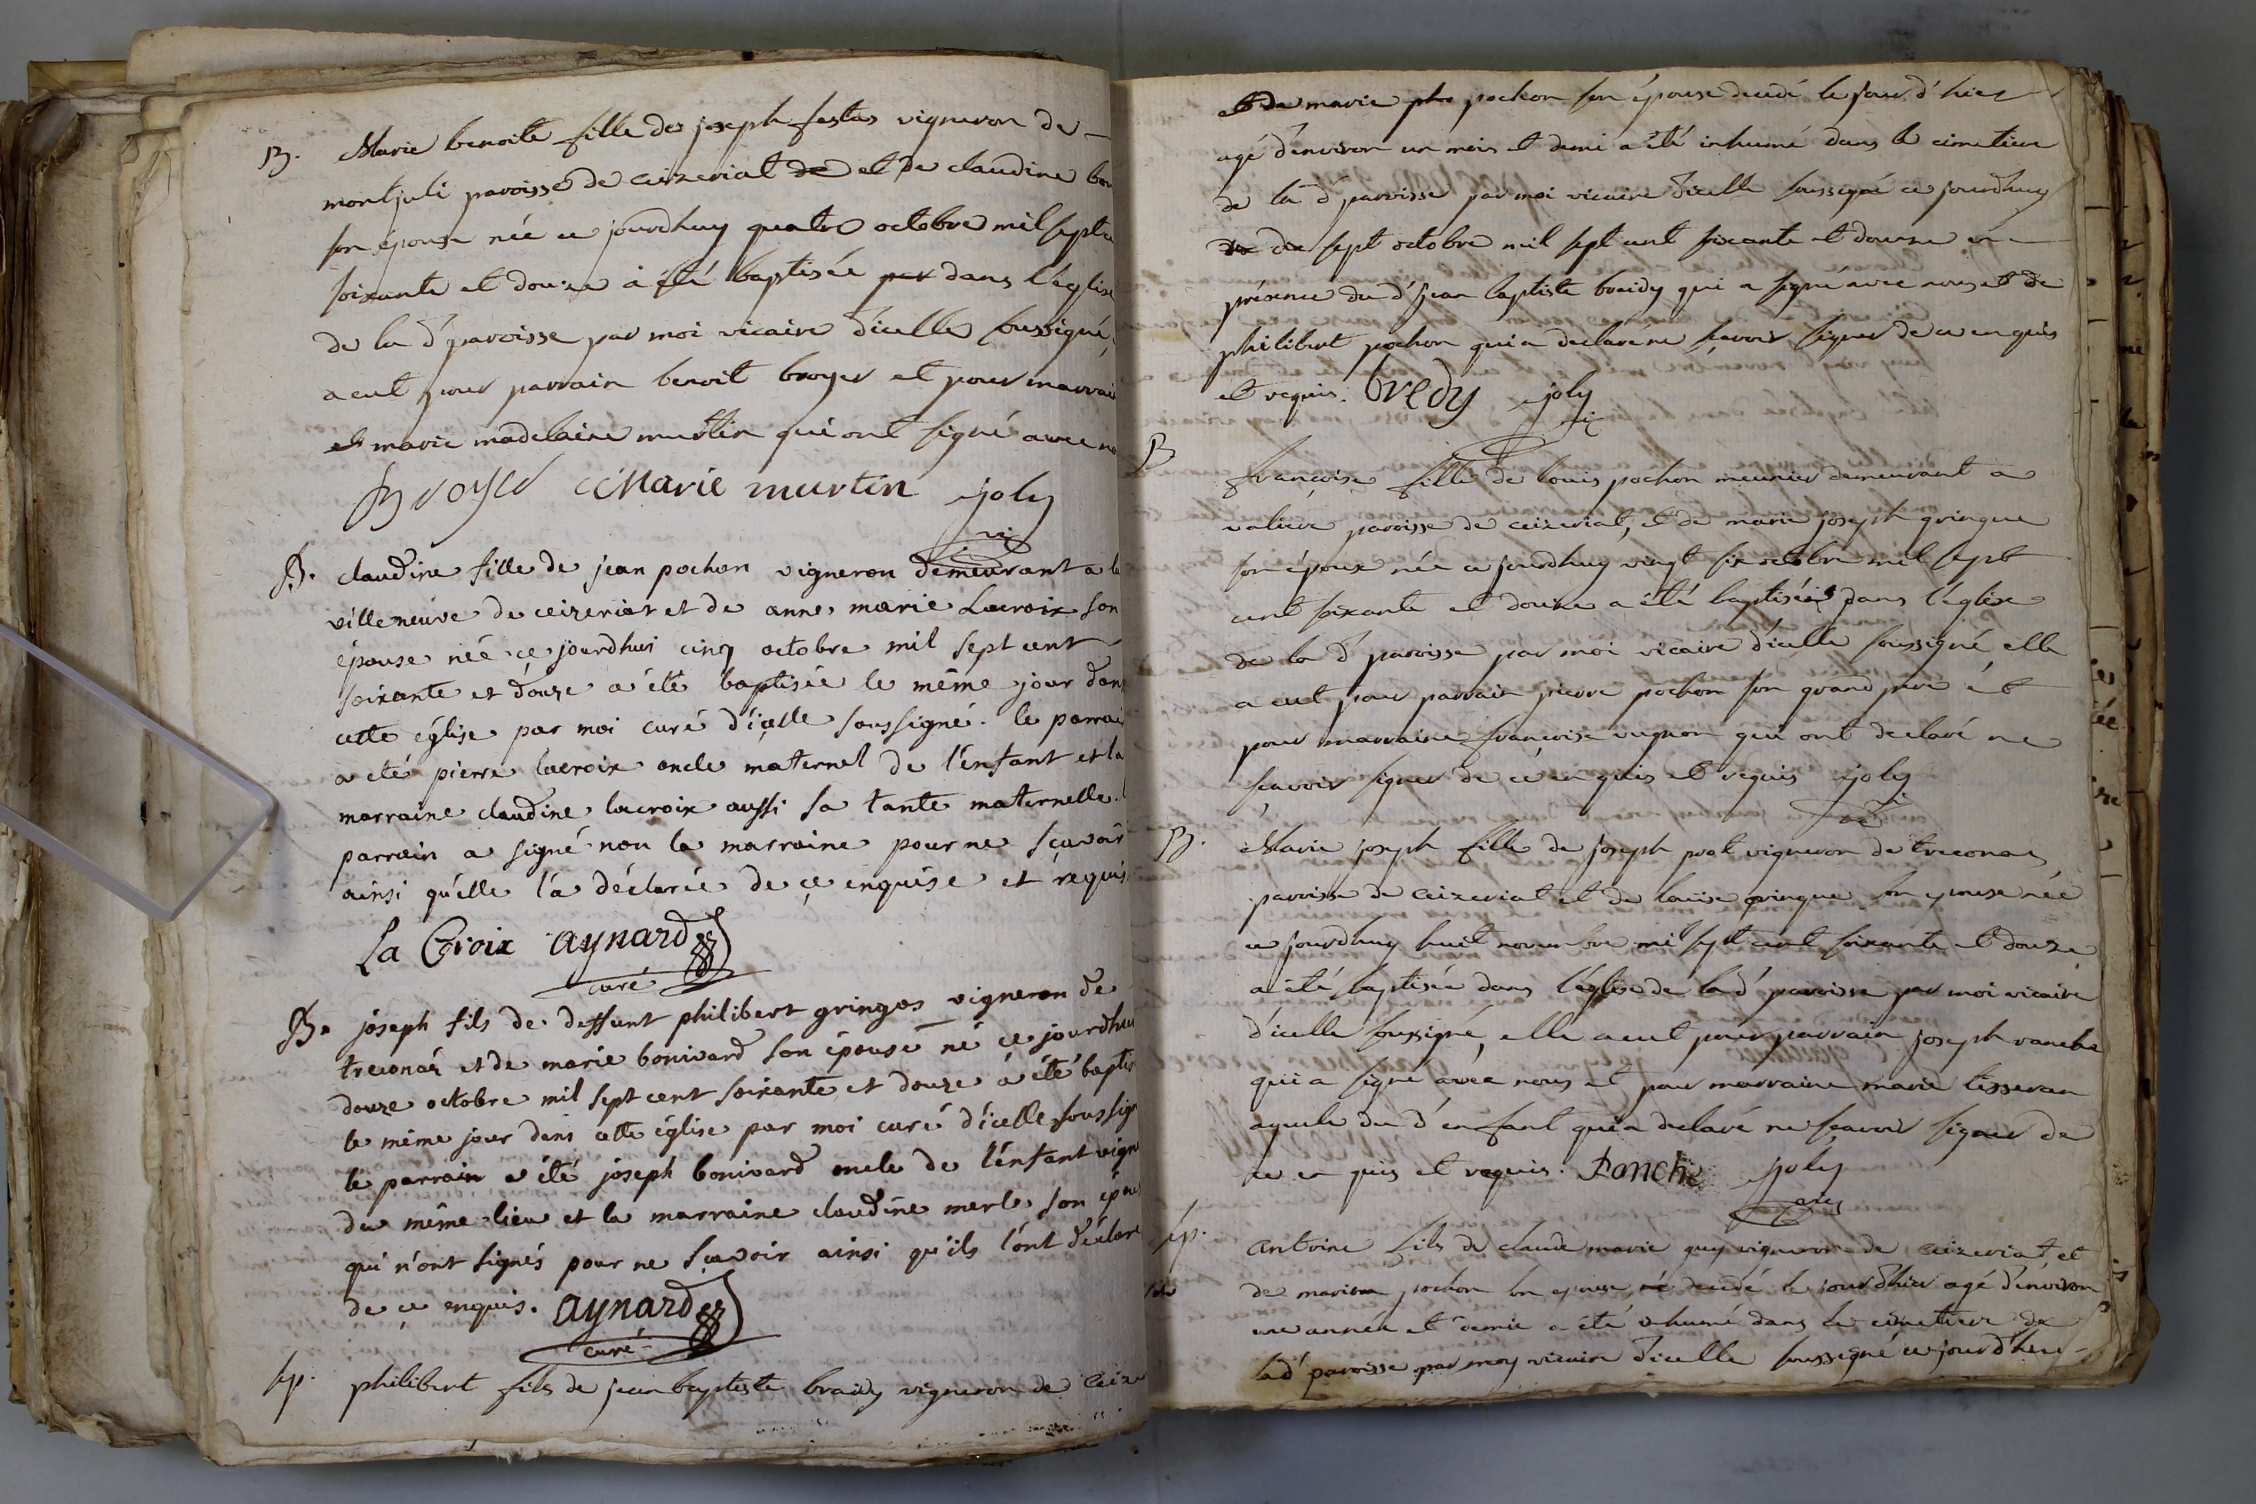 B. Marie benoite fille de joseph festas vigneron de
montjuli paroisse de ceizeriat de et de claudine bon
son épouse née ce jourdhuy quatre octobre mil sept c
soixante et douze a été baptisée par dans l'église
de la d' paroisse par moi vicaire d'icelle soussigné,
a eut pour parrain benoit broyer et pour marrai
et marie madelaine murtin qui ont signé avec no
Broyer Marie murtin joly
vic
B. claudine fille de jean pochon vigneron demeurant a la
villeneuve de ceizeriat et de anne marie Lacroix son
épouse née ce jourdhui cinq octobre mil sept cent
soixante et douze a été baptisée le même jour dans
cette église par moi curé d'icelle soussigné. le parrai
a eté pierre lacroix oncle maternel de l'enfant et la
marraine claudine lacroix aussi sa tante maternelle. l
parrain a signé non la marraine pour ne sçavoir
ainsi qu'elle l'a déclarée de ce enquise et requis
La Croix aynard
curé
B. joseph fils de deffunt philibert gringos vigneron de
treconas et de marie bonivard son épouse né ce jourdhui
douze octobre mil sept cent soixante et douze a été baptis
le même jour dans cette église par moi curé d'icelle soussign
le parrain a été joseph bonivard oncle de l'enfant vign
du même lieu et la marraine claudine merle son épou
qui n'ont signés pour ne sçavoir ainsi qu'ils l'ont déclaré
de ce enquis. aynard
curé
sep. philibert fils de jean baptiste braidy vigneron de Ceize
et de marie pho pochon son épouse decedé le jour d'hier
agé d'environ un mois et demi a été inhumé dans le cimetiere
de la d' paroisse par moi vicaire d'icelle soussigné ce jourdhuy
dix sept octobre mil sept cent soixante et douze en
présence du d' jean baptiste braidy qui a signé avec nous et de
philibert pochon qui a declaré ne sçavoir signer de ce enquis
et requis. bredy joly
vic
B françoise fille de louis pochon meunier demeurant a
valiere paroisse de ceizeriat, et de marie joseph gringue
son épouse née ce jourdhuy vingt six octobre mil sept
cent soixante et douze a été baptisée dans l'église
de la d' paroisse par moi vicaire d'icelle soussigné, elle
a eut pour parrain pierre pochon son grand pere et
pour marraine françoise vugnon qui ont declaré ne
sçavoir signer de ce en quis et requis joly
vic
B. Marie joseph fille de joseph prat vigneron de treconas
paroisse de Ceizeriat et de louise gringue son epouse née
ce jourdhuy huit novembre mil sept cent soixante et douze
a été baptisée dans l'église de la d' paroisse par moi vicaire
d'icelle soussigné, elle a eut pour parrain joseph ranche
qui a signé avec nous et pour marraine marie tisseran
ayeule du d' enfant qui a declaré ne sçavoir signer de
ce en quis et requis. Ranche joly
vic
sep. antoine fils de claude marie guy vigneron de ceizeriat et
de marie pochon son epouse, né decedé le jour d'hier agé d'environ
une année et demie a été inhumé dans le cimetiere de
la d' paroisse par moy vicaire d'icelle soussigné ce jour d'huy